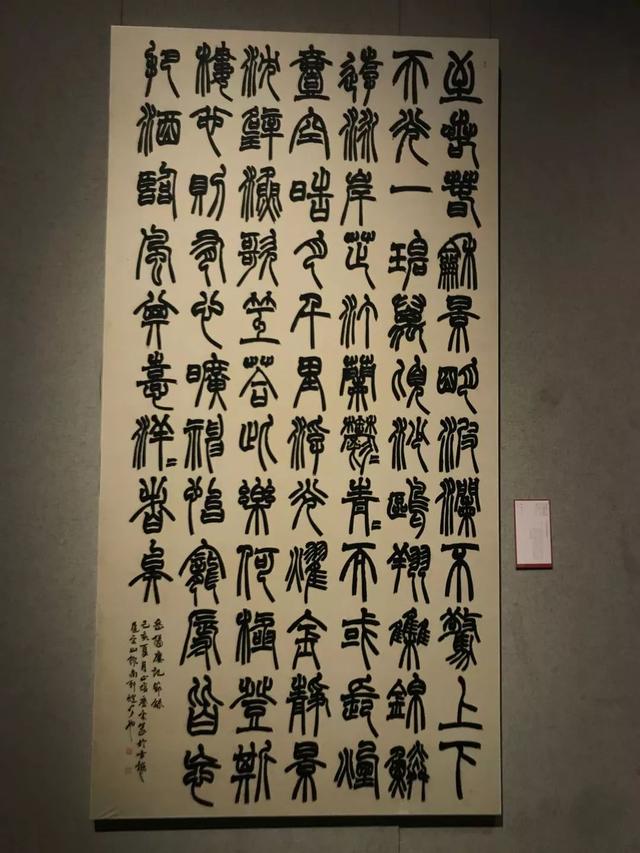 至若春龢景明波瀾不驚上下
天光一碧萬頃沙鷗翔集錦鱗
游泳岸芷汀蘭鬱〻青〻而或長煙
壹空皓月千里浮光耀金靜景
沈璧漁歌互答此樂何極登斯
樓也則有心曠神怡寵辱皆忘
把酒臨風其憙洋〻者矣
岳陽樓記節錄
己亥夏月